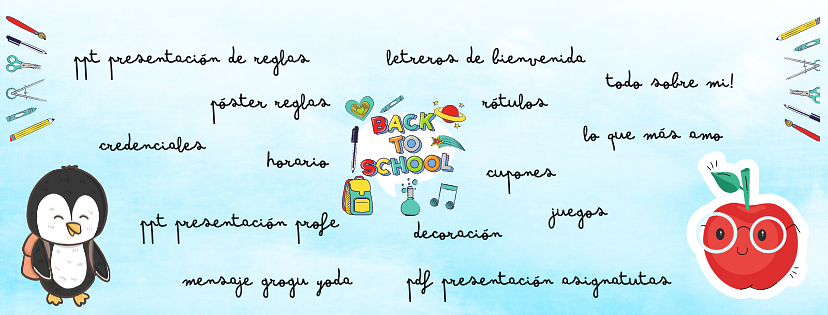 ppt presentación de reglas
letreros de bienvenida
todo sobre mi!
póster reglas
rótulos
BACK
TO
SCHOOL
lo que más amo
credenciales
horario
cupones
juegos
ppt presentación profe
decoración
mensaje grogu yoda
pdf presentación asignatutas